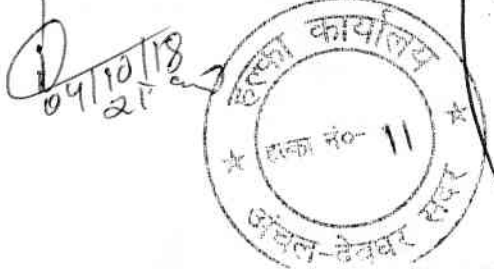 04/10/18
हल्का कार्यालय
हल्का नं०- 11
अंचल-देवघर सदर